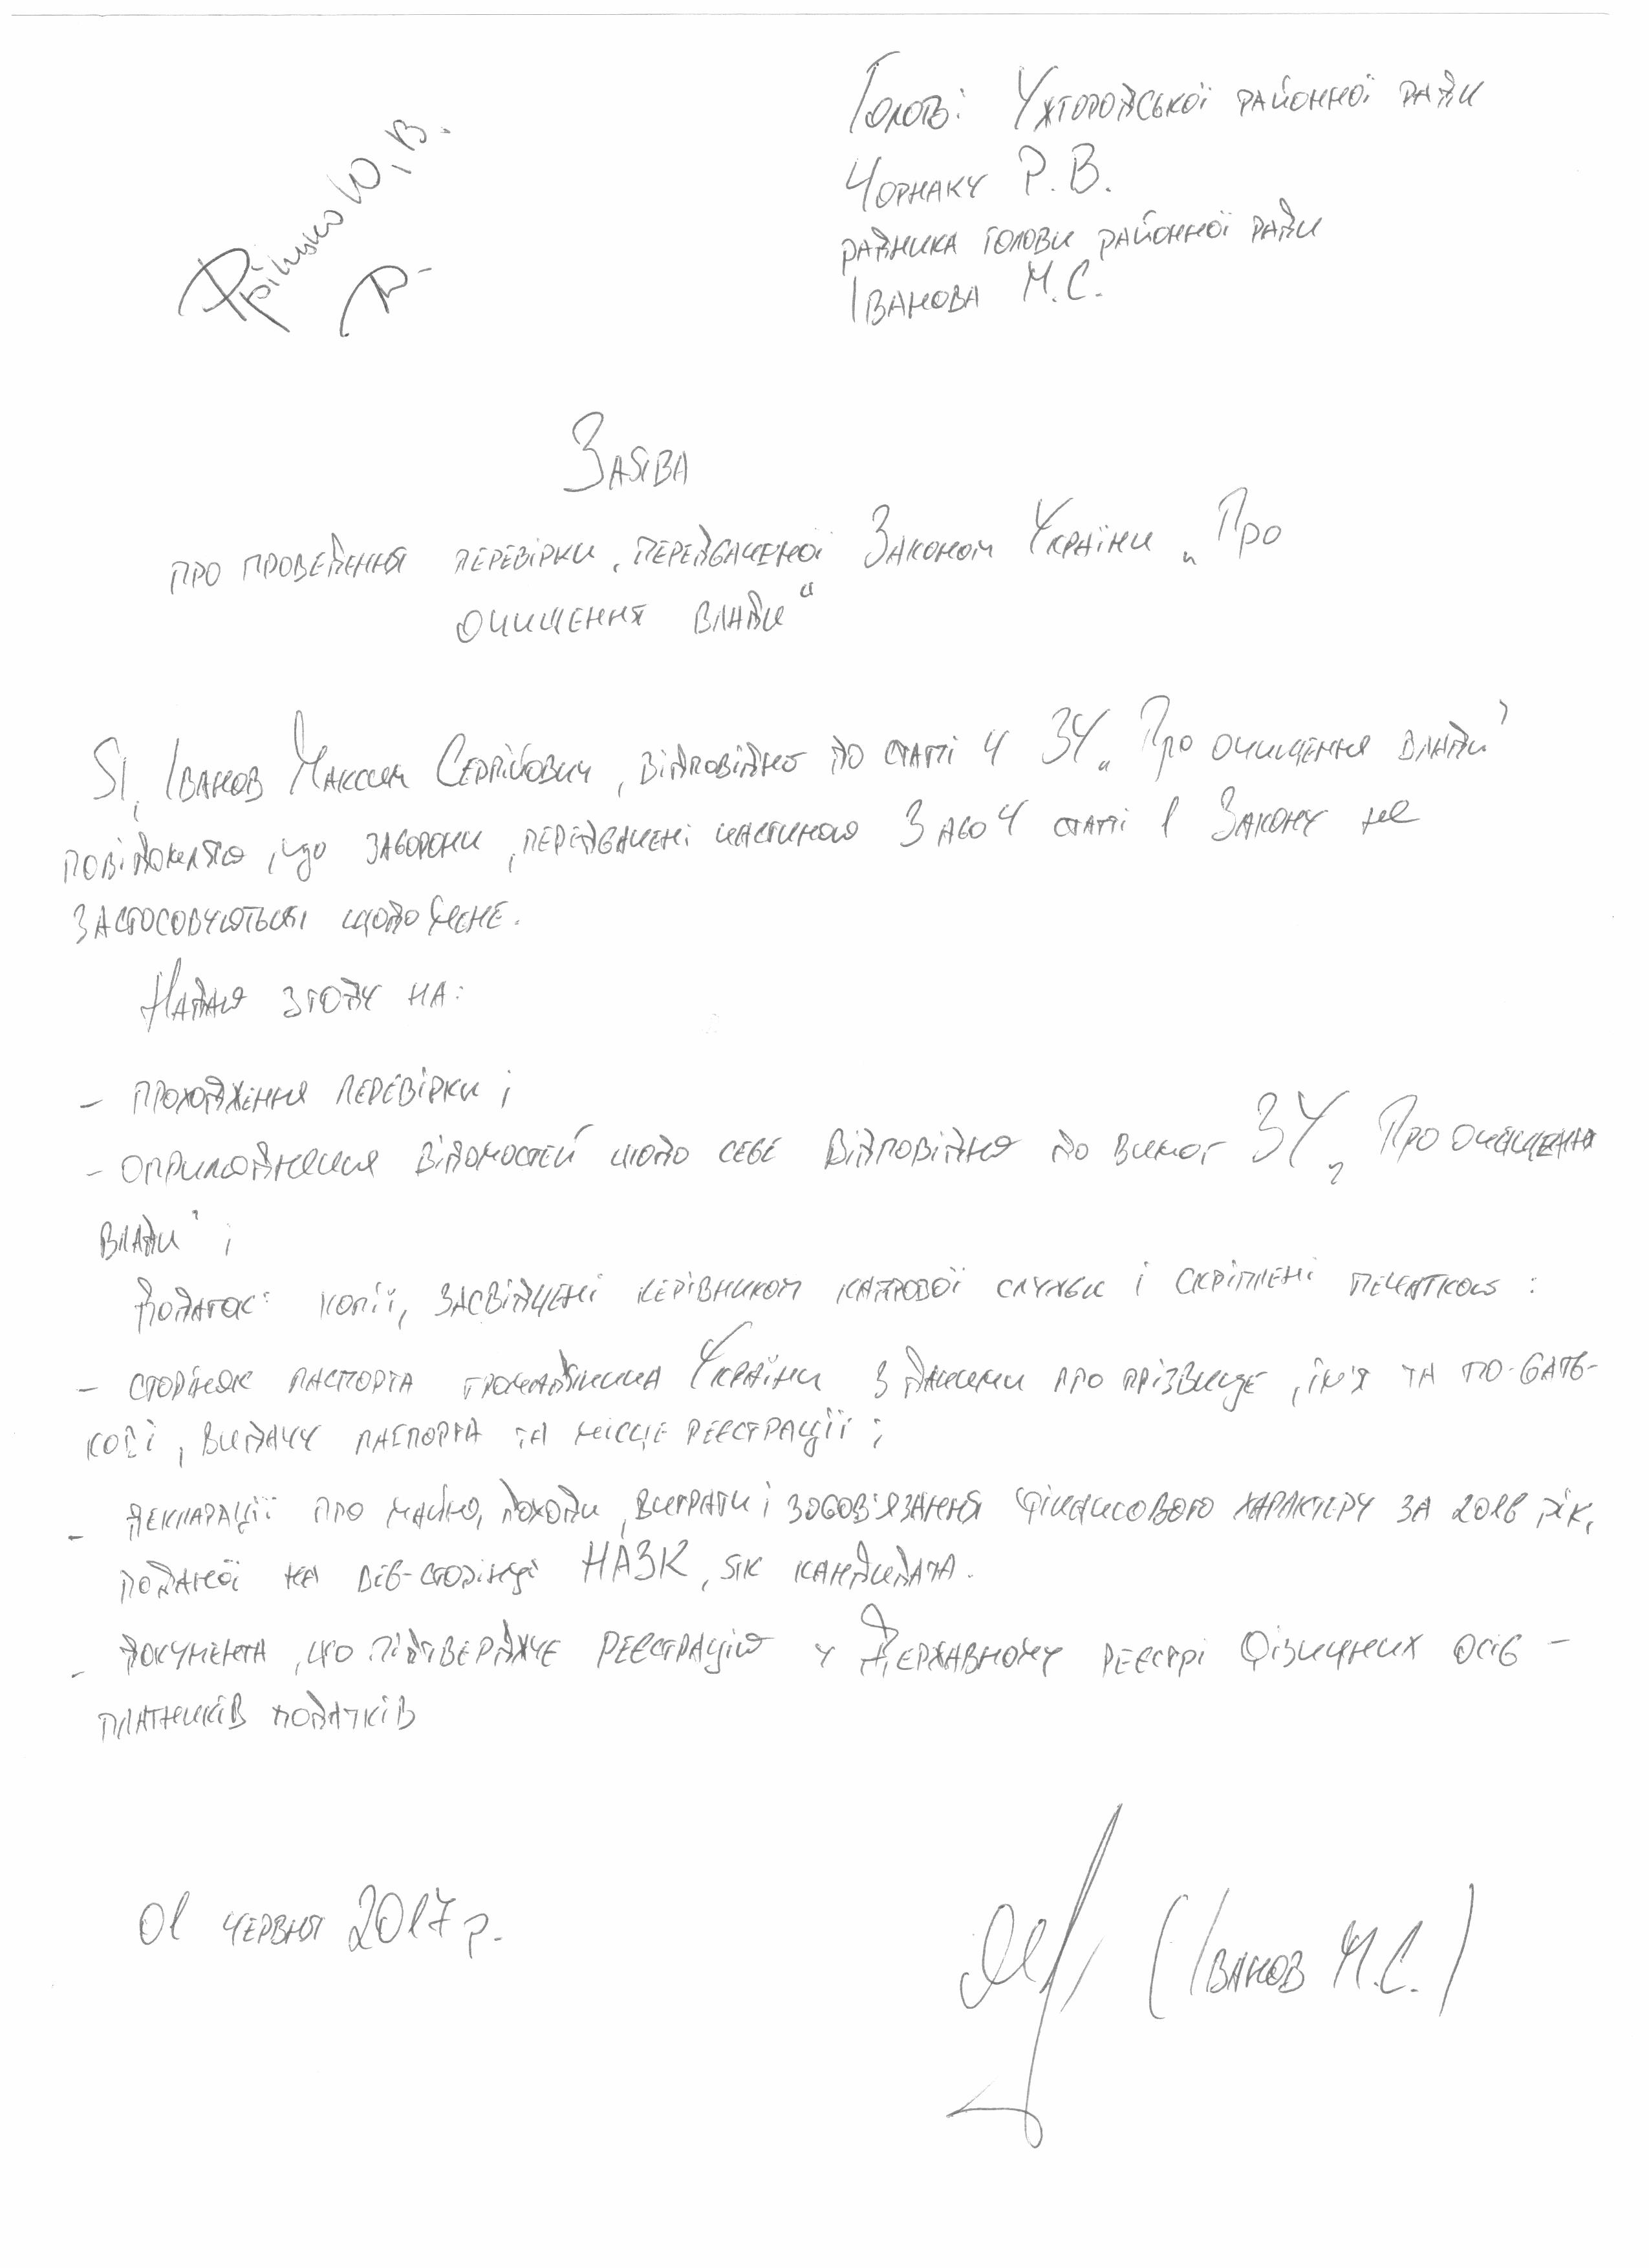 Голові Ужгородської районної ради
Чорнаку Р. В.
радника голови районної ради
Іванова М. С.
Ю. В.
Заява
про проведення перевірки, передбаченої Законом України „Про
очищення влади"
Я, Іванов Максим Сергійович, відповідно до статті 4 ЗУ „Про очищення влади"
повідомляю, що заборони, передбачені частиною 3 або 4 статті 1 Закону не
застосовуються щодо мене.
Надаю згоду на:
- проходження перевірки;
- оприлюднення відомостей щодо себе відповідно до вимог ЗУ „Про очищення
влади";
Додаток: копії, засвідчені керівником кадрової служби і скріплені печаткою:
- сторінок паспорта громадянина України з даними про прізвище, ім'я та по-бать-
кові, видачу паспорта та місце реєстрації;
- декларації про майно, доходи, витрати і зобов'язання фінансового характеру за 2016 рік,
поданої на веб-сторінці НАЗК, як кандидата.
- документа, що підтверджує реєстрацію у Державному реєстрі фізичних осіб -
платників податків
01 червня 2017 р.
(Іванов М.С.)